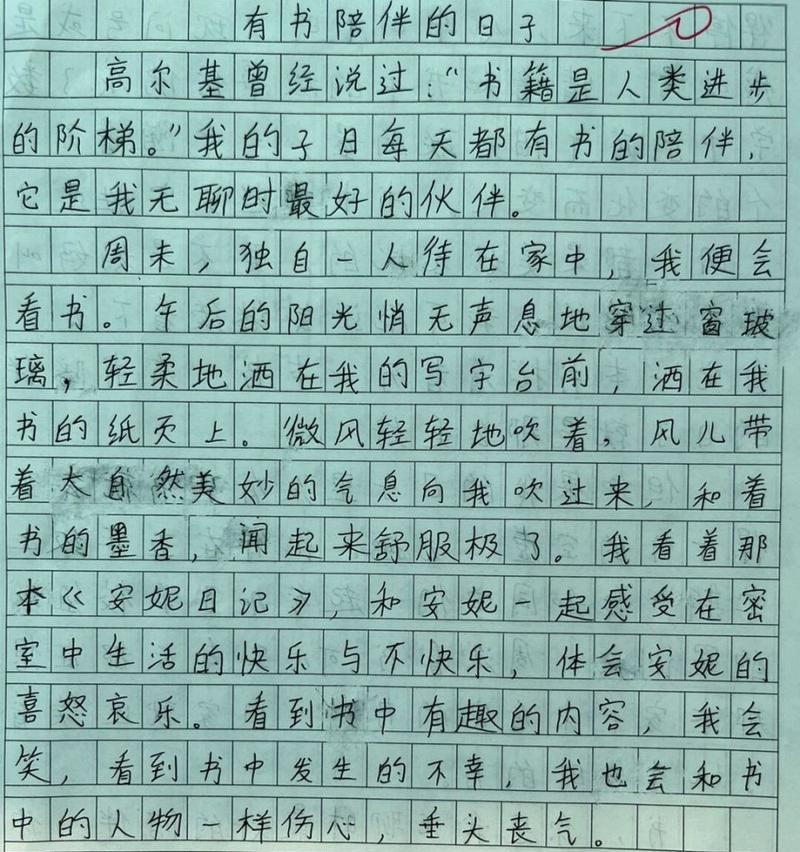 有书陪伴的日子
高尔基曾经说过：“书籍是人类进步
的阶梯。”我的子日每天都有书的陪伴，
它是我无聊时最好的伙伴。
周末，独自一人待在家中，我便会
看书。午后的阳光悄无声息地穿过窗玻
璃，轻柔地洒在我的写字台前，洒在我
书的纸页上。微风轻轻地吹着，风儿带
着大自然美妙的气息向我吹过来，和着
书的墨香，闻起来舒服极了。我看着那
本《安妮日记》，和安妮一起感受在密
室中生活的快乐与不快乐，体会安妮的
喜怒哀乐。看到书中有趣的内容，我会
笑，看到书中发生的不幸，我也会和书
中的人物一样伤心，垂头丧气。